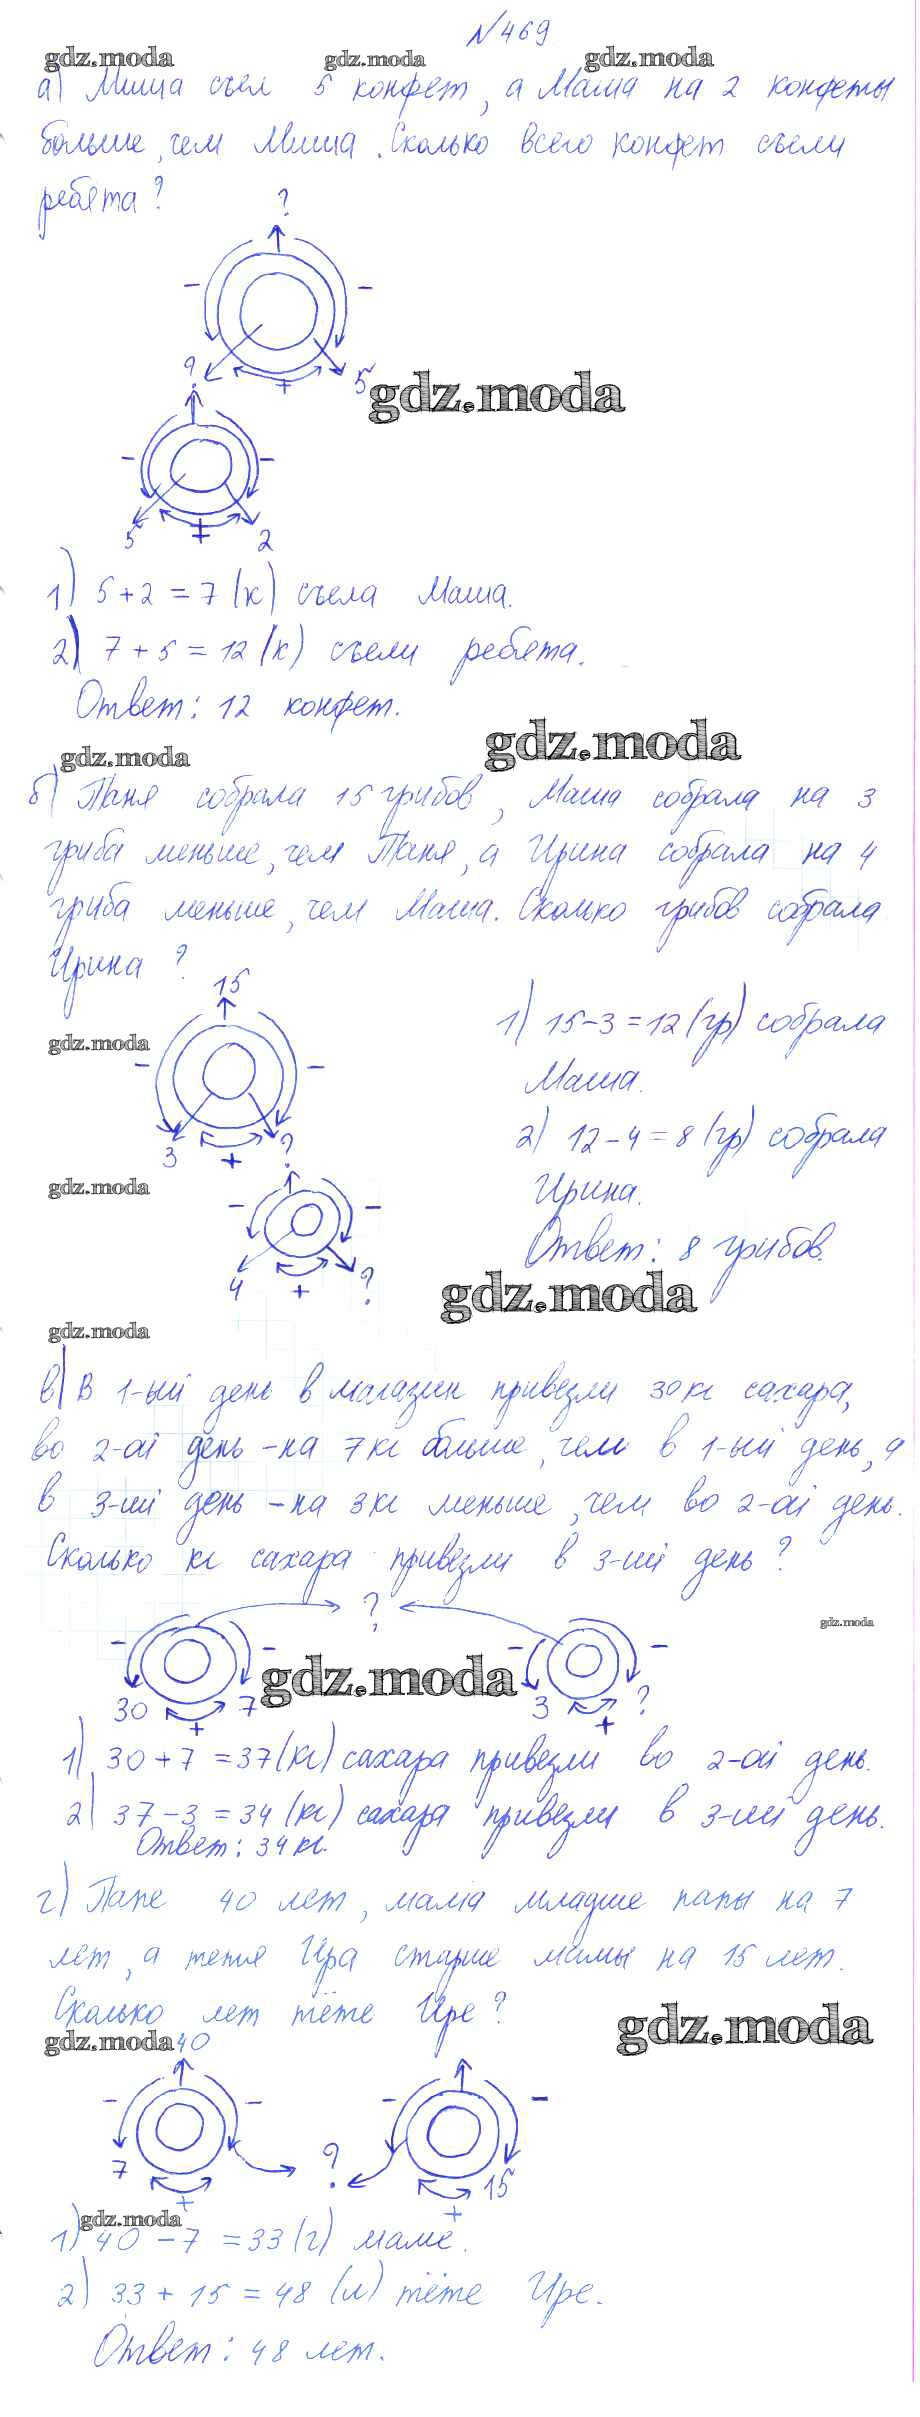 №469
gdz.moda gdz.moda gdz.moda
а) Миша съел 5 конфет, а Маша на 2 конфеты
больше, чем Миша. Сколько всего конфет съели
ребята?
?
- -
? + 5
gdz.moda
- -
5 + 2
1) 5+2=7(к) съела Маша.
2) 7+5=12(к) съели ребята.
Ответ: 12 конфет.
gdz.moda gdz.moda
б) Таня собрала 15 грибов, Маша собрала на 3
гриба меньше, чем Таня, а Ирина собрала на 4
гриба меньше, чем Маша. Сколько грибов собрала
Ирина?
15
gdz.moda
- -
3 + ?
gdz.moda
- -
4 + ?
1) 15-3=12(гр) собрала
Маша.
2) 12-4=8(гр) собрала
Ирина.
Ответ: 8 грибов.
gdz.moda
gdz.moda
в) В 1-ый день в магазин привезли 30 кг сахара,
во 2-ой день - на 7 кг больше, чем в 1-ый день, а
в 3-ий день - на 3 кг меньше, чем во 2-ой день.
Сколько кг сахара привезли в 3-ий день?
?
gdz.moda
- - - -
gdz.moda
30 + 7 3 + ?
1) 30+7=37(кг) сахара привезли во 2-ой день.
2) 37-3=34(кг) сахара привезли в 3-ий день.
Ответ: 34 кг.
г) Папе 40 лет, мама младше папы на 7
лет, а тетя Ира старше мамы на 15 лет.
Сколько лет тёте Ире?
gdz.moda
gdz.moda 40
- - - -
7 + ? + 15
gdz.moda
1) 40-7=33(г) маме.
2) 33+15=48(л) тёте Ире.
Ответ: 48 лет.